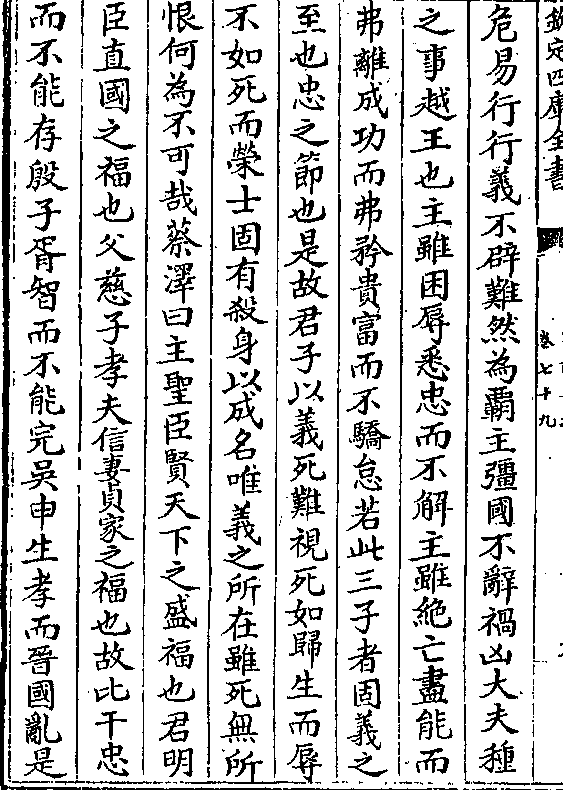 欽定四庫全書
卷七十九
危易行行義不辟難然為霸主彊國不辭禍凶大夫種
之事越王也主雖困辱悉忠而不解主雖絶亡盡能而
弗離成功而弗矜貴富而不驕怠若此三子者固義之
至也忠之節也是故君子以義死難視死如歸生而辱
不如死而榮士固有殺身以成名唯義之所在雖死無所
恨何為不可哉蔡澤曰主聖臣賢天下之盛福也君明
臣直國之福也父慈子孝夫信妻貞家之福也故比干忠
而不能存殷子胥智而不能完吳申生孝而晉國亂是